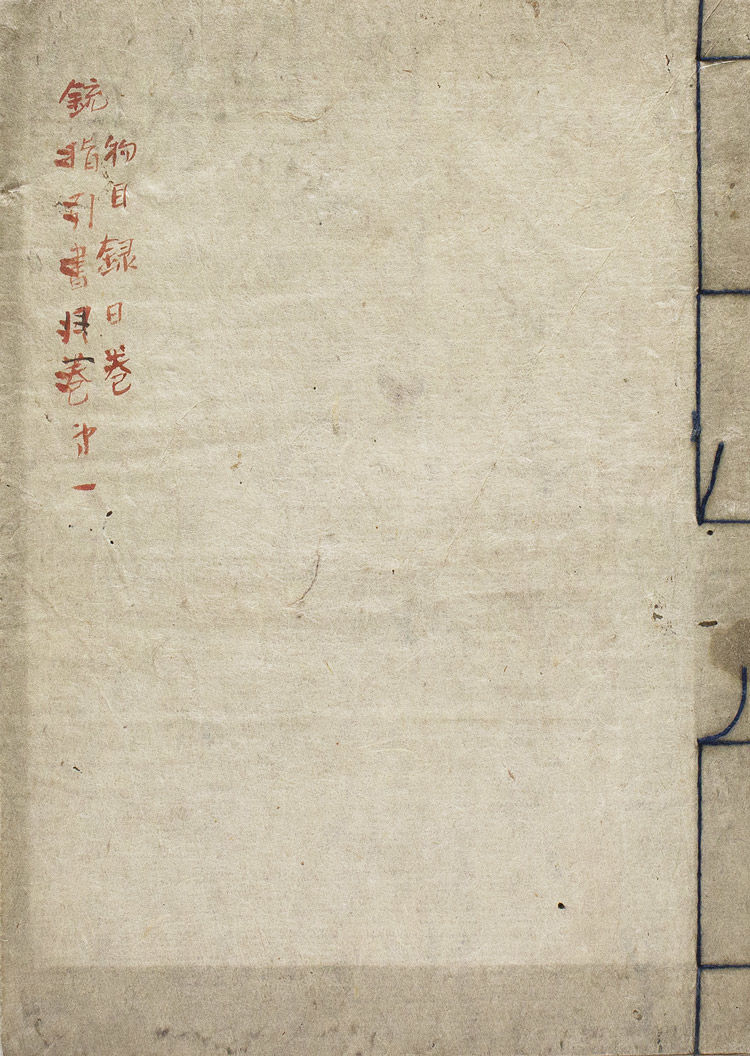 物目録日巻
銃指引書巻一